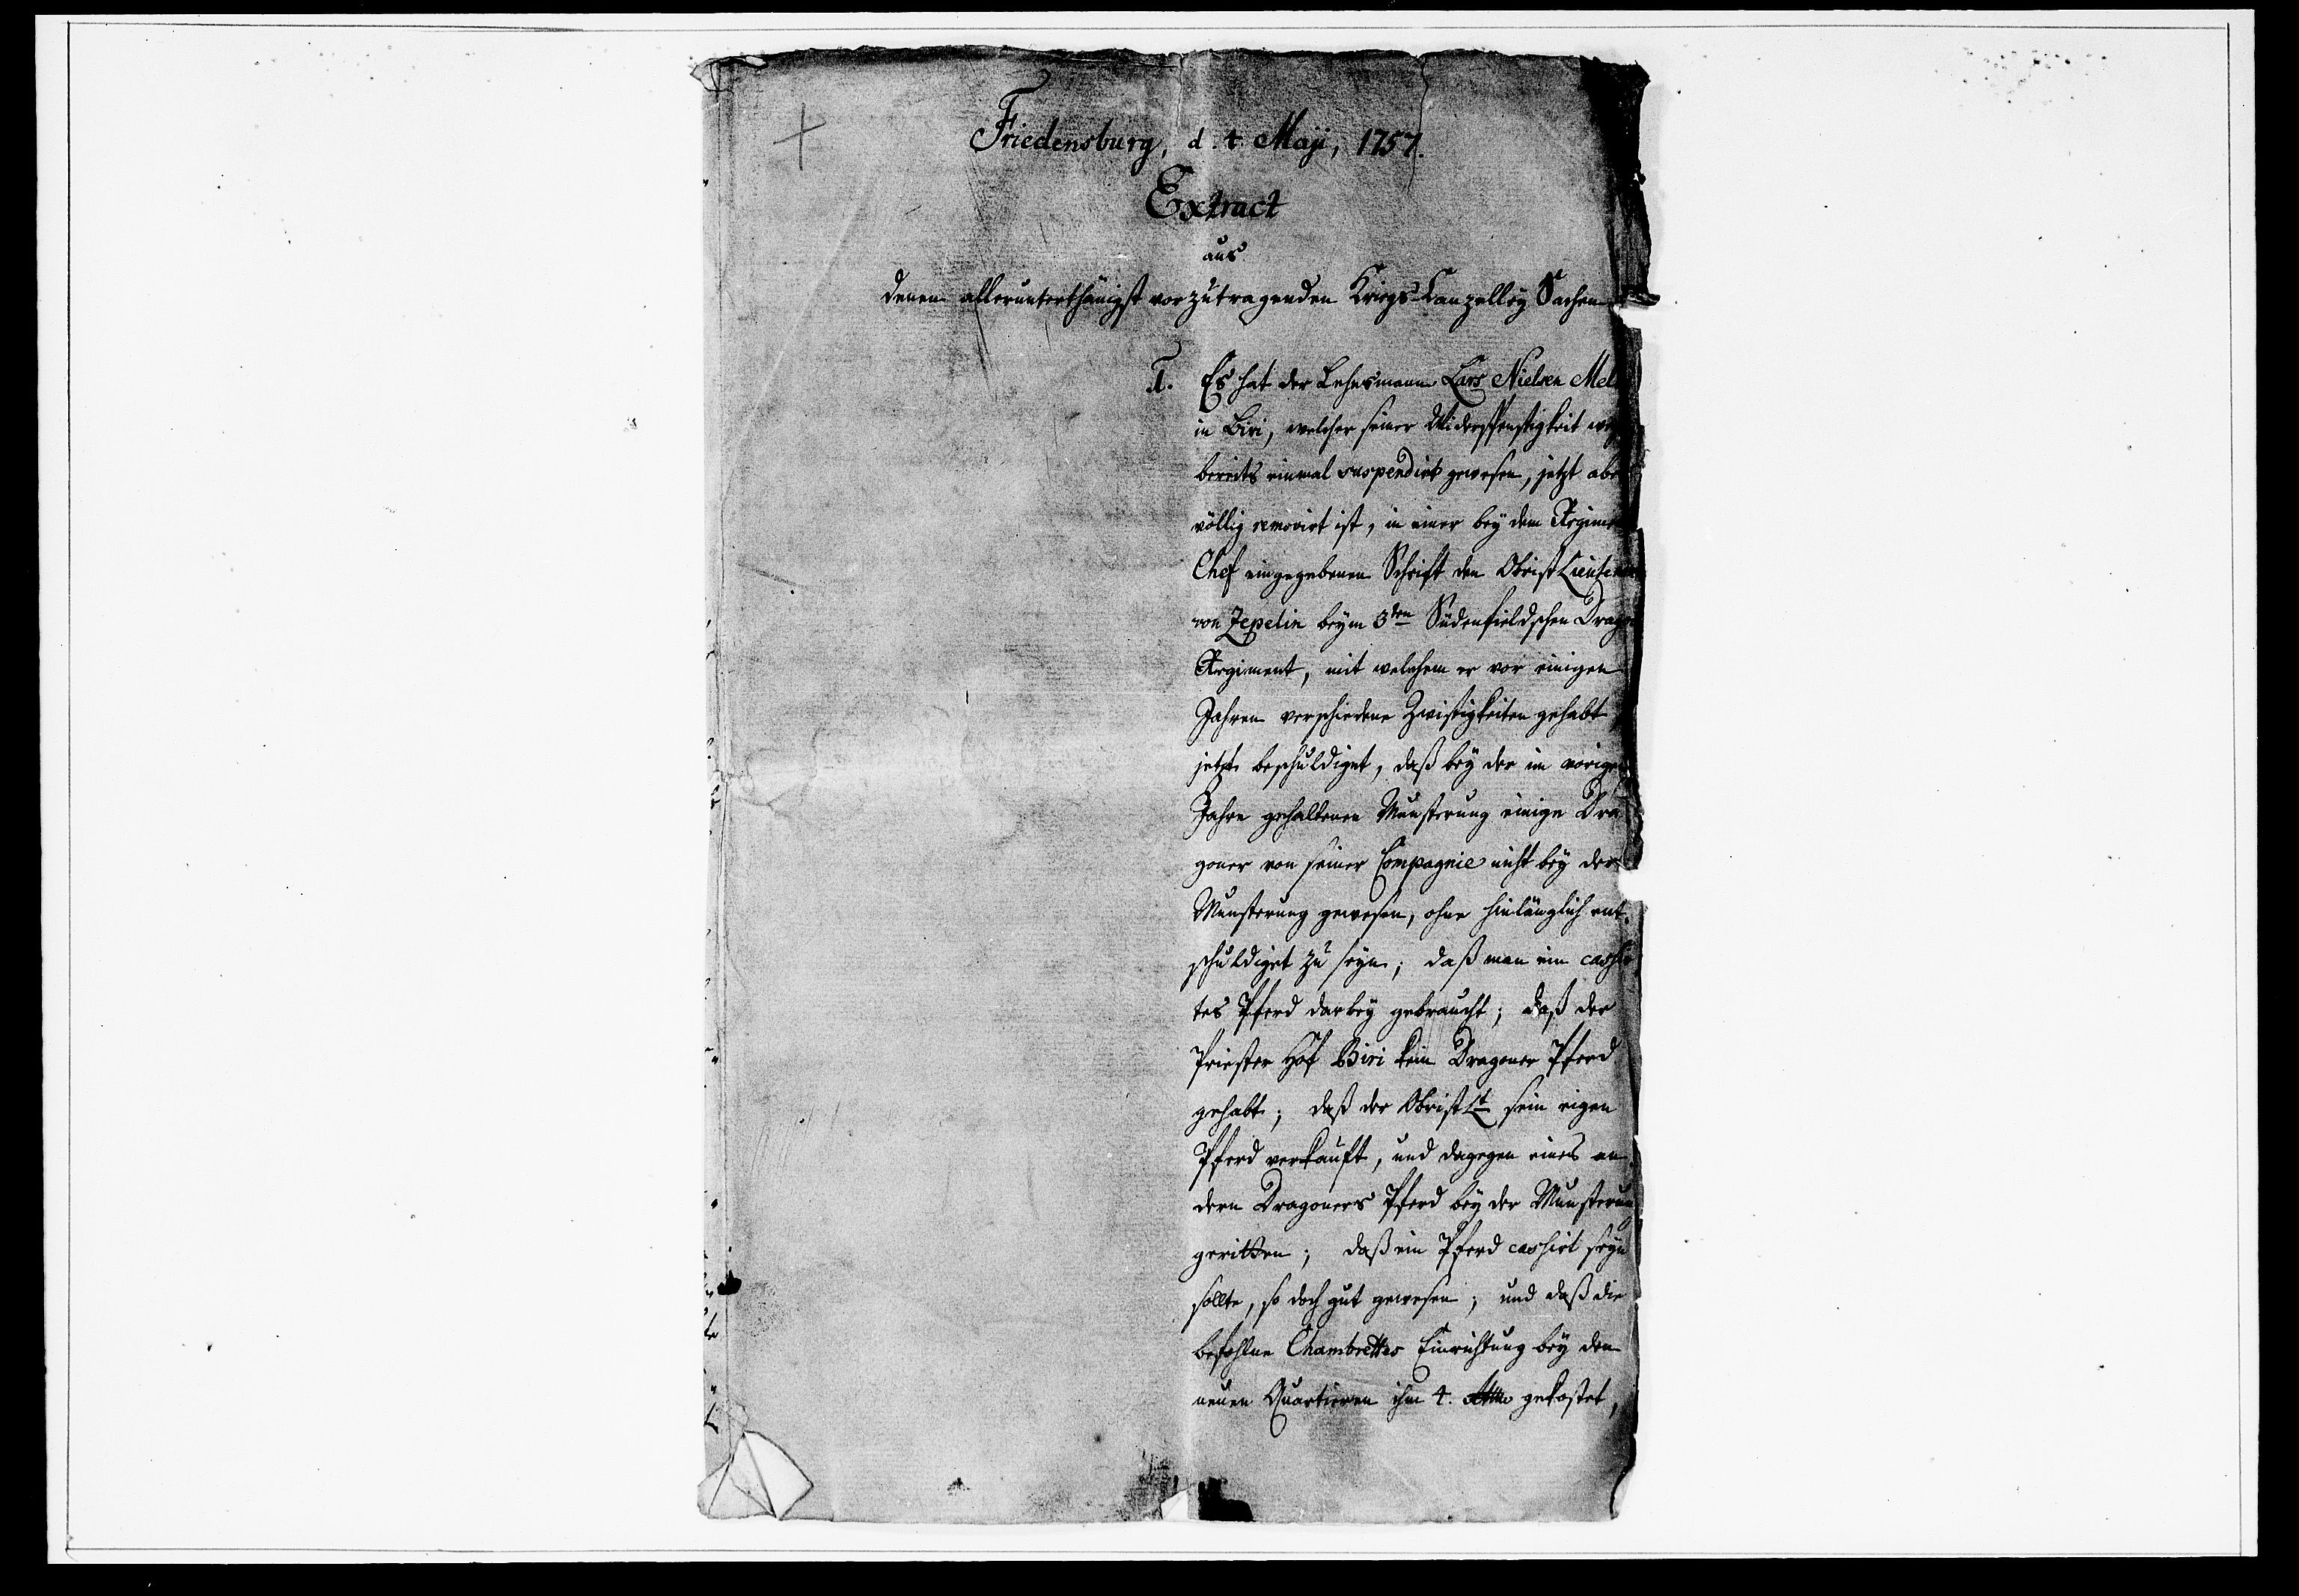 Friedensburg, d. 4 Maji, 1757.
Extract
aus
denen allerunterthänigst vorzutragenden Kriegs-Canzelley Sachen
1. Es hat der Lehnsmann Lars Nielsen
in Biri, welcher seiner Widerspenstigkeit
bereits einmal suspendirt gewesen, jetzt aber
völlig removirt ist, in einer bey dem
Chef eingegebenen Schrift den Obrist
von Zepelin beym 3ten Südenfieldschen
Regiment, mit welchem er vor einigen
Jahren verschiedene Zwistigkeiten gehabt
jetzt beschuldiget, daß bey der im vorigen
Jahre gehaltenen Munsterung einige Dra
goner von seiner Compagnie nicht bey der
Munsterung gewesen, ohne hinlänglich ent-
schuldiget zu seyn; daß man ein cassir
tes Pferd darbey gebraucht; daß der
Priester Hof Biri kein Dragoner Pferd
gehabt; daß der Obrist Lt sein eigen
Pferd verkauft, und dagegen eines an
dern Dragoners Pferd bey der Munsterung
geritten; daß ein Pferd cassirt seyn
sollte, so doch gut gewesen; und daß die
befohlne Chambrettes Einrichtung bey den
neuen Quartieren ihm 4. gekostet,